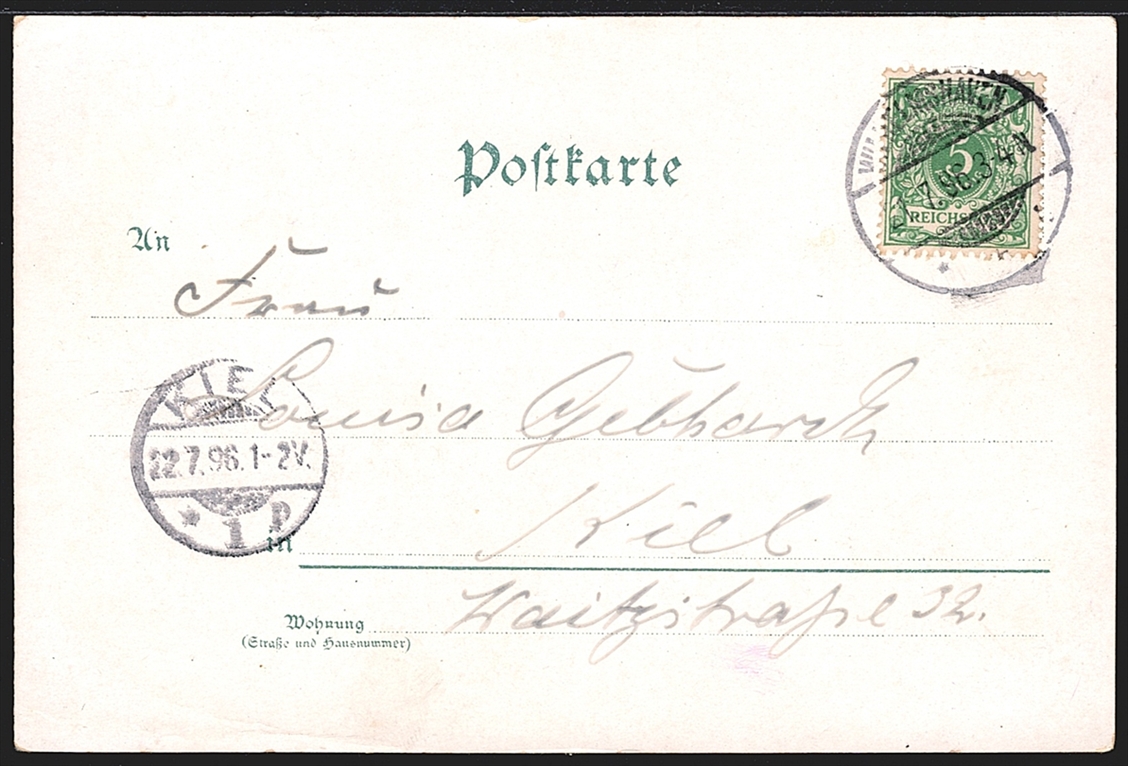 Postkarte
5
REICHSPOST
7.96.3-4N
An
Frau
Louisa Gebhardt
KIEL
22.7.96.1-2V.
* 1 p
in
Kiel
Waitzstraße 32.
Wohnung
(Straße und Hausnummer)